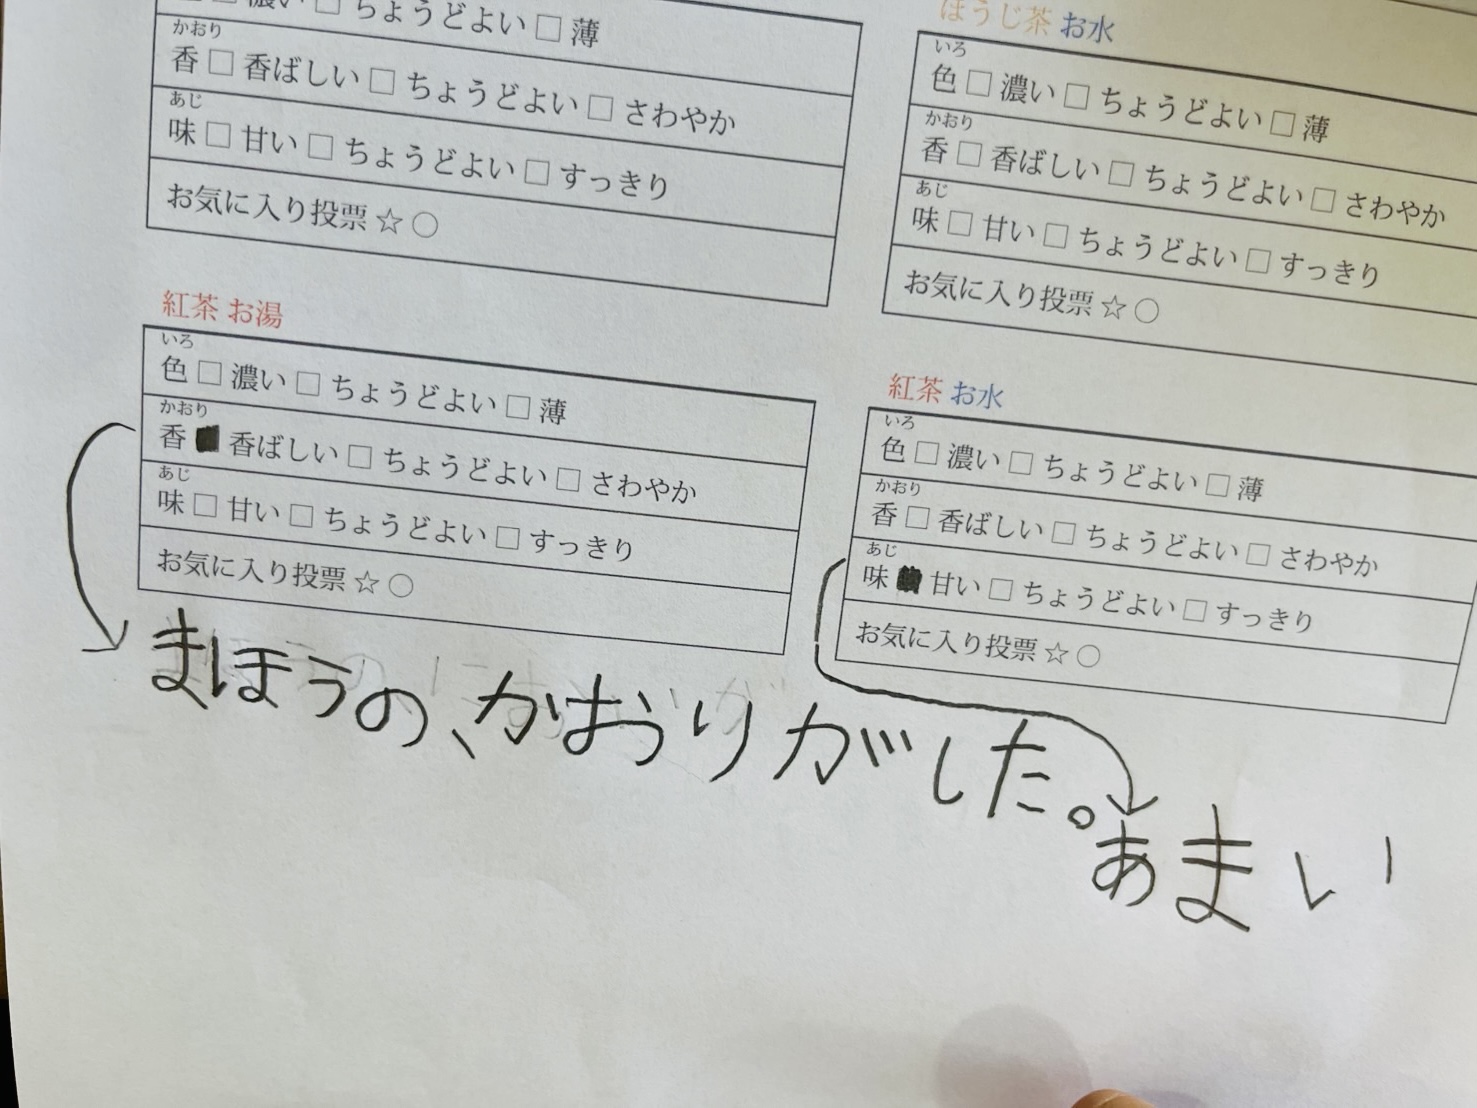 濃い □ ちょうどよい □ 薄
かおり
香 □ 香ばしい □ ちょうどよい □ さわやか
あじ
味 □ 甘い □ ちょうどよい □ すっきり
お気に入り投票 ☆ ○
ほうじ茶 お水
いろ
色 □ 濃い □ ちょうどよい □ 薄
かおり
香 □ 香ばしい □ ちょうどよい □ さわやか
あじ
味 □ 甘い □ ちょうどよい □ すっきり
お気に入り投票 ☆ ○
紅茶 お湯
いろ
色 □ 濃い □ ちょうどよい □ 薄
かおり
香 ■ 香ばしい □ ちょうどよい □ さわやか
あじ
味 □ 甘い □ ちょうどよい □ すっきり
お気に入り投票 ☆ ○
紅茶 お水
いろ
色 □ 濃い □ ちょうどよい □ 薄
かおり
香 □ 香ばしい □ ちょうどよい □ さわやか
あじ
味 ■ 甘い □ ちょうどよい □ すっきり
お気に入り投票 ☆ ○
まほうの、かおうりがした。
あまい